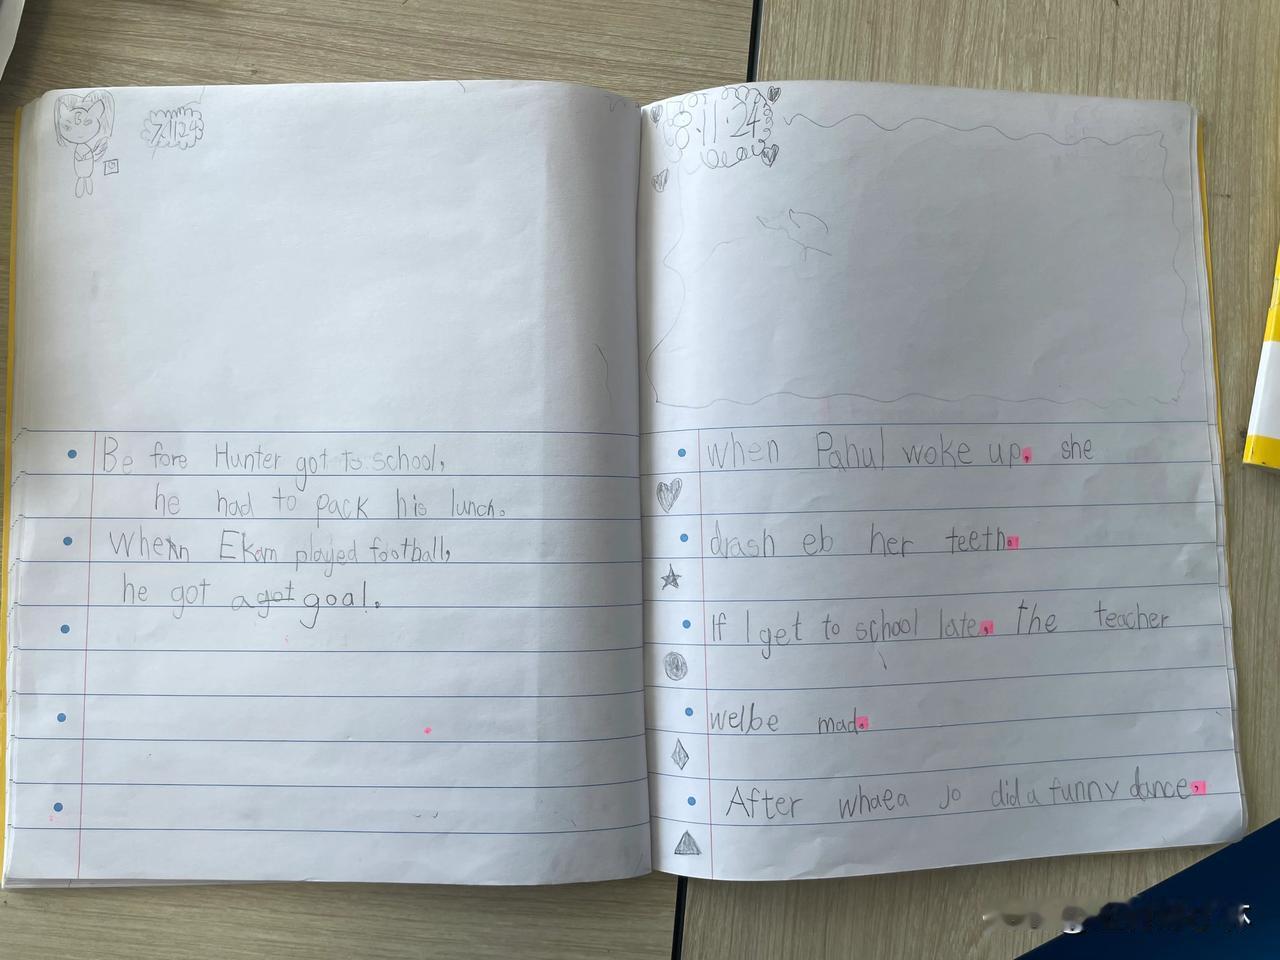 7.11.24
Be fore Hunter got to school,
he had to pack his lunch.
When Ekam played football,
he got a got goal.
8.11.24
when Pahul woke up, she
drash eb her teeth.
If I get to school late, the teacher
welbe mad.
After whaea jo did a funny dance,